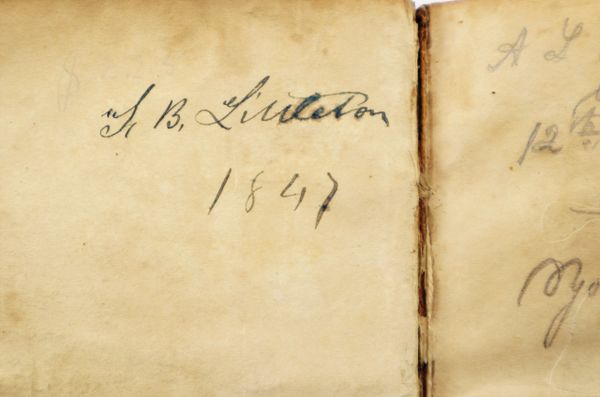 S. B. Littleton
1847
A L
12th